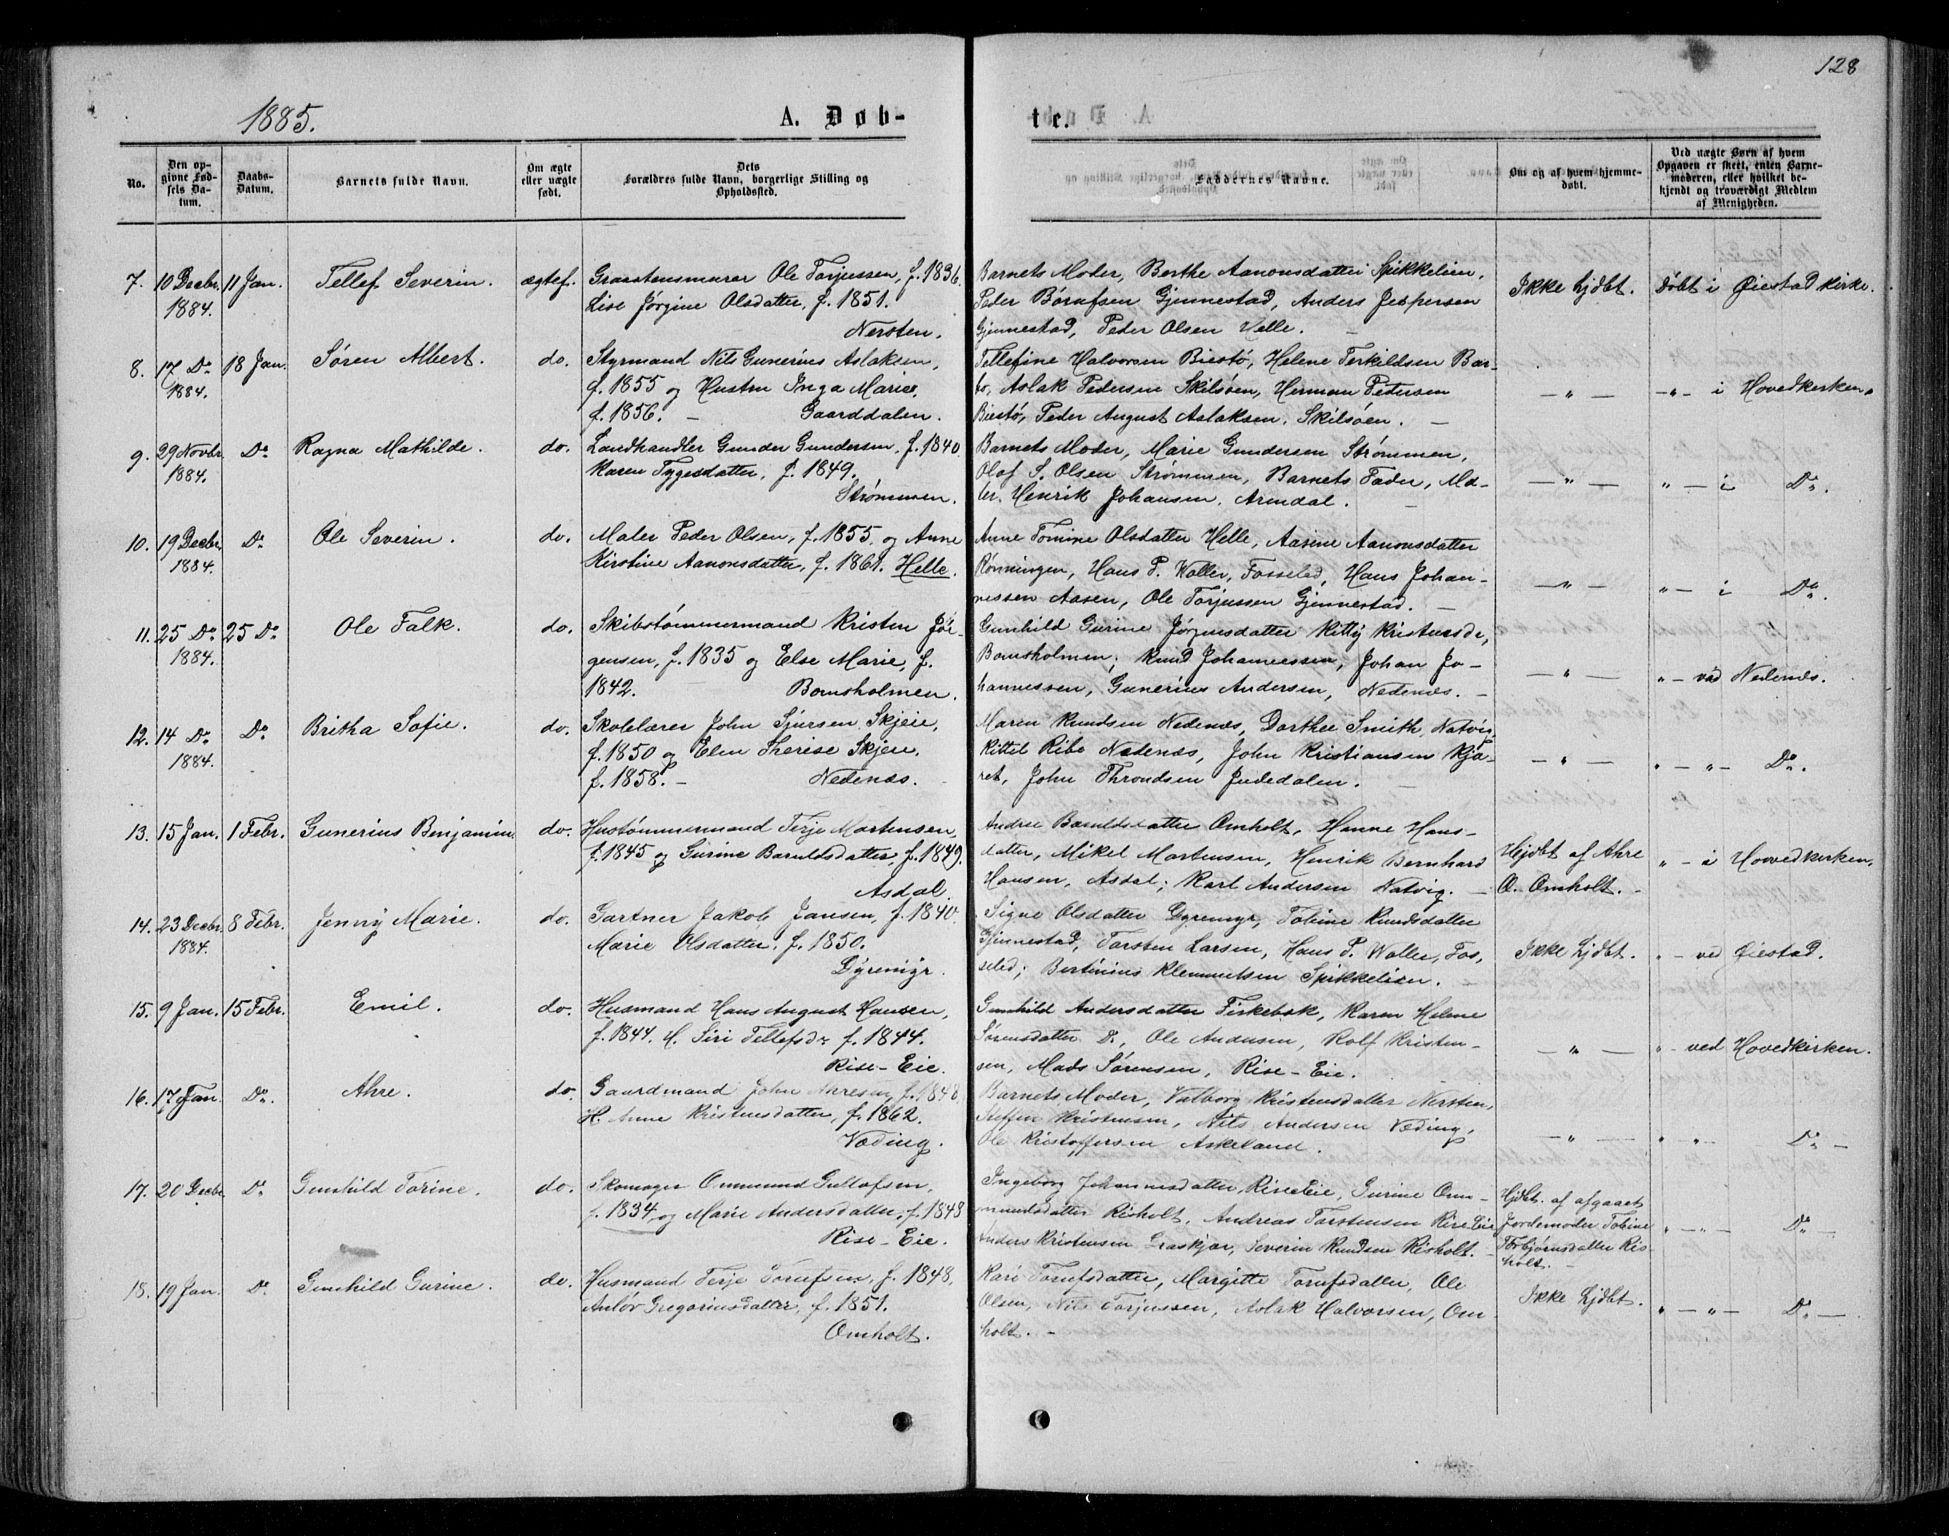 128
1885.
A. Døb-
te.
No.
Den op-
givne Fød-
sels Da-
tum.
Daabs-
Datum.
Barnets fulde Navn.
Om ægte
eller uægte
født.
Dets
Forældres fulde Navn, borgerlige Stilling og
Opholdssted.
Faddernes Navne.
Om og af hvem hjemme-
døbt.
Ved uægte Børn af hvem
Opgaven er skeet, enten Barne-
moderen, eller hvilket be-
kjendt og troværdigt Medlem
af Menigheden.
7. 10 Decbr. 1884. 11 Jan. Tellef Severin. ægtef.
Graastensmurer Ole Torjussen, f. 1836.
Lise Jørgine Olsdatter, f. 1851.
Nersten.
Barnets Moder, Berthe Aanonsdatter Spikkelien,
Peder Børufsen Gjennestad, Anders Jespersen
Gjennestad, Peder Olsen Velle. —
Ikke hjdbt. Døbt i Øiestad Kirke.
8. 17 Do 1884. 18 Jan. Søren Albert. do.
Styrmand Nils Gunerius Aslaksen,
f. 1855 og Hustru Inga Marie,
f. 1856. — Gaarddalen.
Tellefine Halvorsen Biestø, Helene Terkildsen Bar-
bo, Aslak Pedersen Skilsøen, Herman Pedersen
Biestø, Peder August Aslaksen, Skilsøen. —
— " — —"— i Hovedkirken.
9. 29 Novbr. 1884. Do Ragna Mathilde. do.
Landhandler Gunder Gundersen, f. 1840
Karen Tygesdatter, f. 1849.
Strømmen.
Barnets Moder, Marie Gundersen Strømmen,
Olaf S. Olsen Strømmen, Barnets Fader, Ma-
ler Henrik Johansen, Arendal. —
— " — " — i Do.
10. 19 Decbr. 1884. Do Ole Severin. do.
Maler Peder Olsen, f. 1855 og Anne
Kirstine Aanonsdatter, f. 1861. Helle.
Anne Tomine Olsdatter Helle, Aasene Aanonsdatter
Rønningen, Hans P. Waller, Fosseled, Hans Johan-
nessen Aasen, Ole Torjussen Gjennestad. —
— " — " — i Do.
11. 25 Do 1884. 25 Do Ole Falk. do.
Skibstømmermand Kristen Jør-
gensen, f. 1835 og Else Marie, f.
1842. Bomsholmen.
Gunhild Gurine Jørgensdatter, Kitty Kristensdr,
Bomsholmen; Knud Johannessen, Johan Jo-
hannessen, Gunerius Andersen, Nedenæs. —
— " — " — ved Nedenæs.
12. 14 Do 1884. Do Britha Sofie. do.
Skolelærer John Sjursen Skjeie,
f. 1850 og Elen Therese Skjeie,
f. 1858. — Nedenæs.
Maren Knudsen Nedenæs, Dorthee Smith, Natvig,
Kittel Ribe Nedenæs, John Kristiansen Kjø-
ret, John Throndsen Judedalen.
— " — " — " — Do.
13. 15 Jan. 1 Febr. Gunerius Benjamin do.
Hustømmermand Terje Mortensen,
f. 1845 og Gurine Baruldsdatter, f. 1849.
Asdal.
Andree Baruldsdatter Omholt, Hanne Hans-
datter, Mikel Mortensen, Henrik Bernhard
Hansen, Asdal; Karl Andersen Natvig. —
Hjdbt af Ahre
O. Omholt. — " — i Hovedkirken.
14. 23 Decbr. 1884. 8 Febr. Jenny Marie. do.
Gartner Jakob Jansen, f. 1840.
Marie Olsdatter, f. 1850.
Gyremyr.
Signe Olsdatter Gyremyr, Tobine Knudsdatter
Gjennestad, Torsten Larsen, Hans P. Waller, Fos-
seled; Bertinius Klemmetsen Spikkelien.
Ikke hjdbt. " — ved Øiestad.
15. 9 Jan. 15 Febr. Emil. do.
Husmand Hans August Hansen,
f. 1844. H. Siri Tellefsdr f. 1844.
Rise-Eie.
Gunhild Andersdatter Fiskebæk, Maren Helene
Sørensdatter Do, Ole Andersen, Rolf Kristen-
sen, Mads Sørensen, Rise-Eie.
— " — " — ved Hovedkirken.
16. 17 Jan. Do. Ahre. do.
Gaardmand John Ahresen, f. 1848.
H. Anne Kristensdatter, f. 1862.
Væding.
Barnets Moder, Valborg Kristensdatter Nersten,
Steffen Kristensen, Nils Andersen Væding,
Ole Kristoffersen Askeland.
— " — " " — Do —
17. 20 Decbr. Do Gunhild Torine. do.
Skomager Ommund Gullofsen,
f. 1834, og Marie Andersdatter, f. 1848
Rise-Eie.
Ingeborg Johannesdatter, Rise Eie, Gurine Om-
mundsdatter Risholt, Andreas Torstensen Rise Eie
Anders Kristensen Graskjær, Severin Knudsen Risholt. —
Hjdbt. af afgaaet
Jordemoder Tobine
Torbjørnsdatter Ris-
holt. — " — " — Do —
18. 19 Jan. Do Gunhild Gurine. do.
Husmand Terje Torufsen, f. 1848,
Anlør Gregoriusdatter, f. 1851.
Omholt.
Kari Torufsdatter, Margitte Torufsdatter, Ole
Olsen, Nils Torjussen, Aslak Halvorsen, Om
holt. —
Ikke hjdbt. " — " — Do —